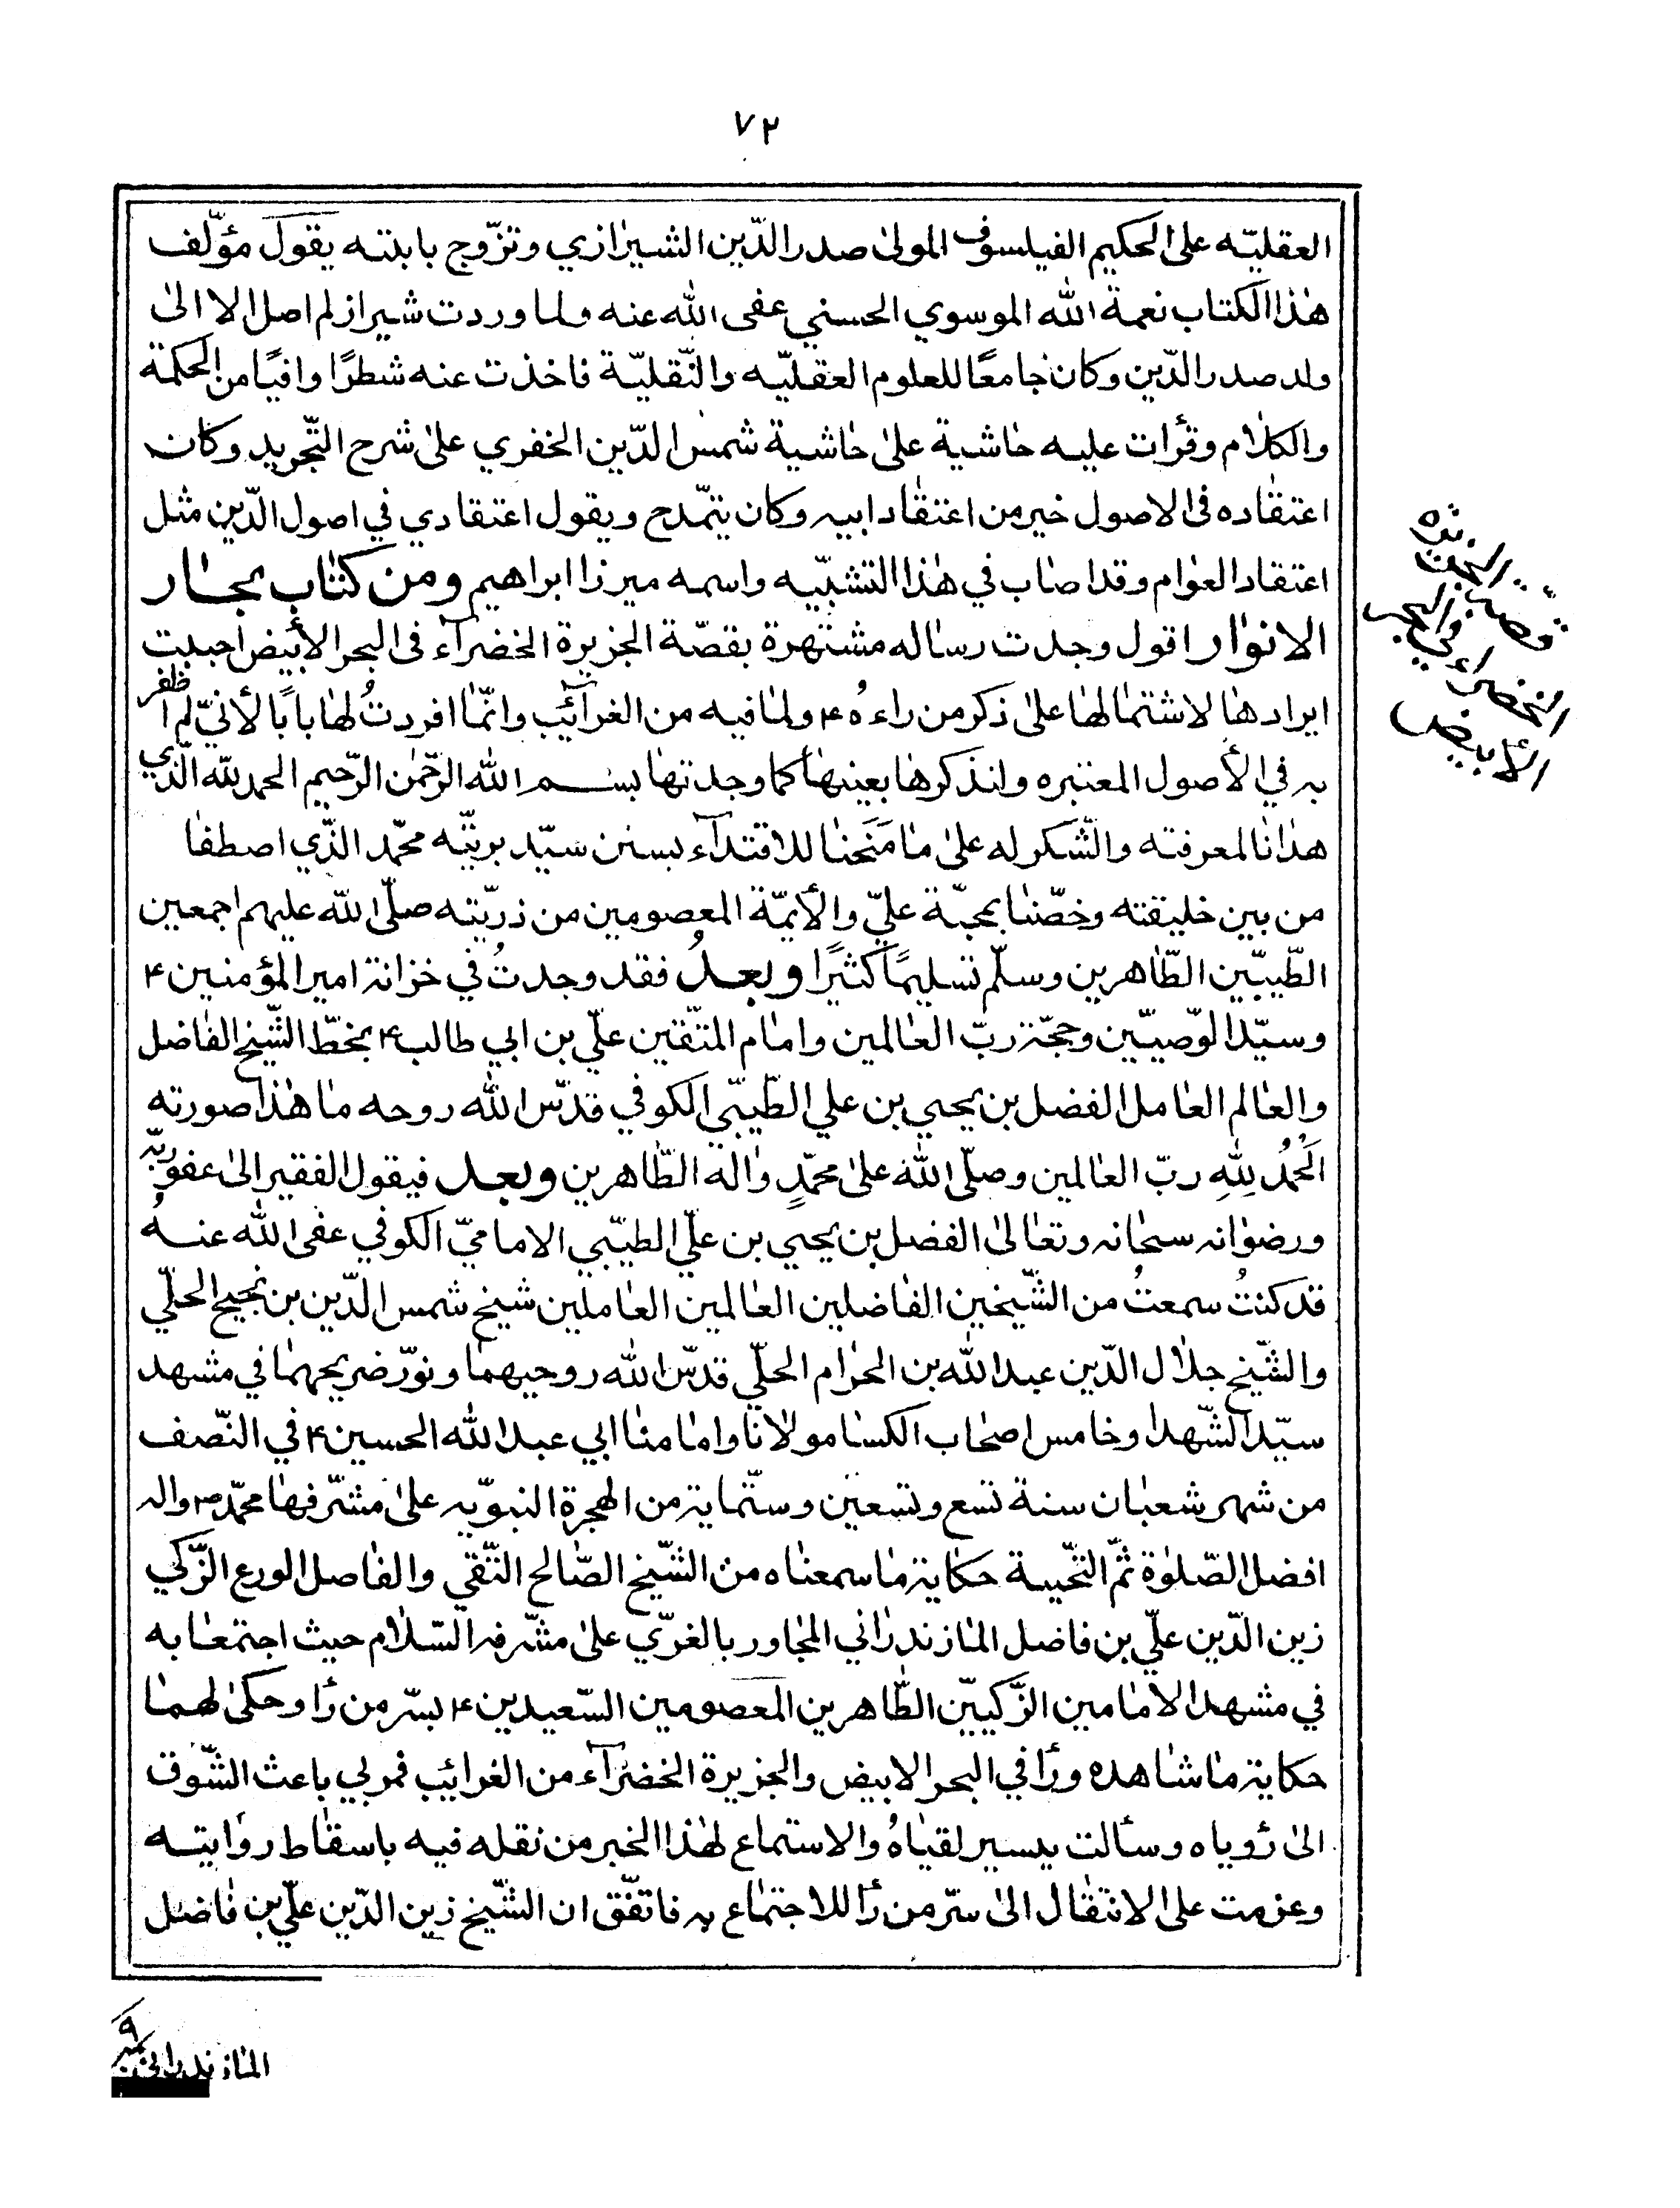 ٧٢
العقليّه على الحكيم الفيلسوف المولىٰ صدر الدّين الشيرازي وتزّوج بابنته يقول مؤلّف
هٰذا الكتاب نعمة الله الموسوي الحسني عفى الله عنه ولما وردت شيراز لم اصل الا الىٰ
ولد صدر الدّين وكان جٰامعًا للعلوم العقليّه والنّقليّة فاخذت عنه شطرًا وافيًا من الحكمة
والكلٰام وقرأت عليه حٰاشية علىٰ حٰاشية شمس الدّين الخفري علىٰ شرح التّجريد وكان
اعتقٰاده فى الاصول خير من اعتقٰاد ابيه وكان يتمّدح ويقول اعتقادي في اصول الدّين مثل
اعتقاد العوٰام وقد اصٰاب في هٰذا التشبّيه واسمه ميرزا ابراهيم ومن كتٰاب بحٰار
الانوٰار اقول وجدت رسٰاله مشتهرة بقصّة الجزيرة الخضرآء فى البحر الأبيض احببت
ايرادهٰا لاشتمٰالهٰا علىٰ ذكر من راءهُ ۴ ولمٰا فيه من الغرآئب وانّمٰا افردتُ لهٰا بابًا لأنيّ لم اظفر
به في الأصول المعتبره ولنذكرهٰا بعينهٰا كما وجدتهٰا بسم الله الرّحمٰن الرّحيم الحمد لله الّذي
هدٰانٰا لمعرفته والشّكر له علىٰ مٰا مَنَحنٰا للاقتدآء بسنن سيّد بريّته محمّد الذّي اصطفٰا
من بين خليقته وخصّنٰا بمحبّة عليّ والأئمّة المعصومين من ذريّته صلّى الله عليهم اجمعين
الطّيبّين الطّاهرين وسلّم تسليمًا كثيرًا وبعدُ فقد وجدتُ في خزانة امير المؤمنين ۴
وسيّد الوّصيّين وحجّة ربّ العٰالمين وامٰام المتّقين عليّ بن ابي طالب ۴ بخطّ الشّيخ الفٰاضل
والعٰالم العٰامل الفضل بن يحيي بن علي الطّيبّي الكوفي قدسّ الله روحه مٰا هٰذا صورته
اَلْحَمْدُ لِلّٰهِ ربّ العٰالمين وصلّى اللهُ علىٰ محمّدٍ وٰاله الطّاهرين وبعد فيقول الفقير الىٰ عفو ربّه
ورضوٰانه سبحٰانه وتعٰالىٰ الفضل بن يحيي بن عليّ الطيبّي الاماميّ الكوفي عفى الله عنهُ
قد كنتُ سمعتُ من الشّيخين الفٰاضلين العٰالمين العٰاملين شيخ شمس الدّين بن نجيح الحلّي
والشّيخ جلٰال الدّين عبد الله بن الحرٰام الحلّي قدسّ الله روحيهمٰا ونوّر ضريحهمٰا في مشهد
سيّد الشّهدٰا وخامس اصحٰاب الكسٰا مولٰانٰا وامٰامنٰا ابي عبد الله الحسين ۴ في النّصف
من شهر شعبٰان سنة تسع وتسعين وستّماية من الهجرة النبويّه علىٰ مشرّفهٰا محمّد ص واله
افضل الصّلوٰة ثمّ التّحيّة حكاية مٰا سمعنٰاه من الشّيخ الصّالح التّقي والفٰاصل الورع الزّكي
زين الدّين عليّ بن فاضل المٰازندرٰاني المجٰاور بالغرّي علىٰ مشرّفه السّلٰام حيث اجتمعٰا به
في مشهد الامٰامين الزّكيّين الطّاهرين المعصومين السّعيدين ۴ بسرّ من رأا وحكىٰ لهمٰا
حكاية مٰا شٰاهده ورأا في البحر الابيض والجزيرة الخضرٰآء من الغرائب فمر بي باعث الشّوق
الىٰ رؤياه وسألت يسير لقيٰاهُ والاستماع لهٰذا الخبر من نقله فيه باسقٰاط روٰايته
وعزمت على الانتقٰال الىٰ سرّ من رأا للاجتمٰاع به فاتفّق ان الشّيخ زين الدّين عليّ بن فٰاضل
قصّة الجزيره
الخضراء في البحر
الأبيض
المٰازندرانى